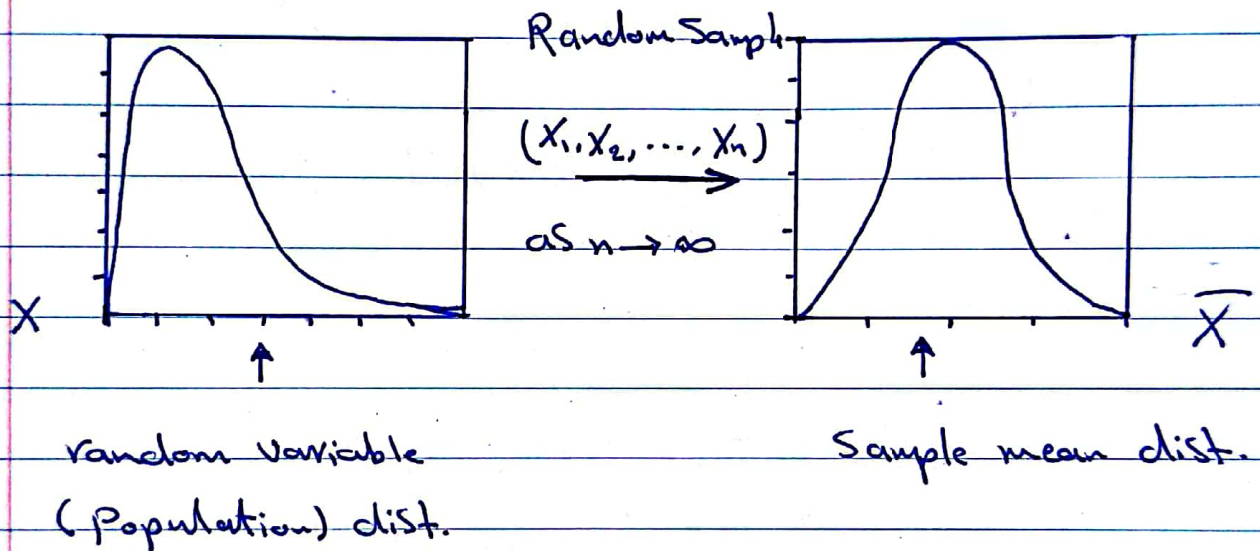 Random Sample
(X₁, X₂, ..., Xₙ)
as n → ∞
X
X̅
random variable
(Population) dist.
Sample mean dist.